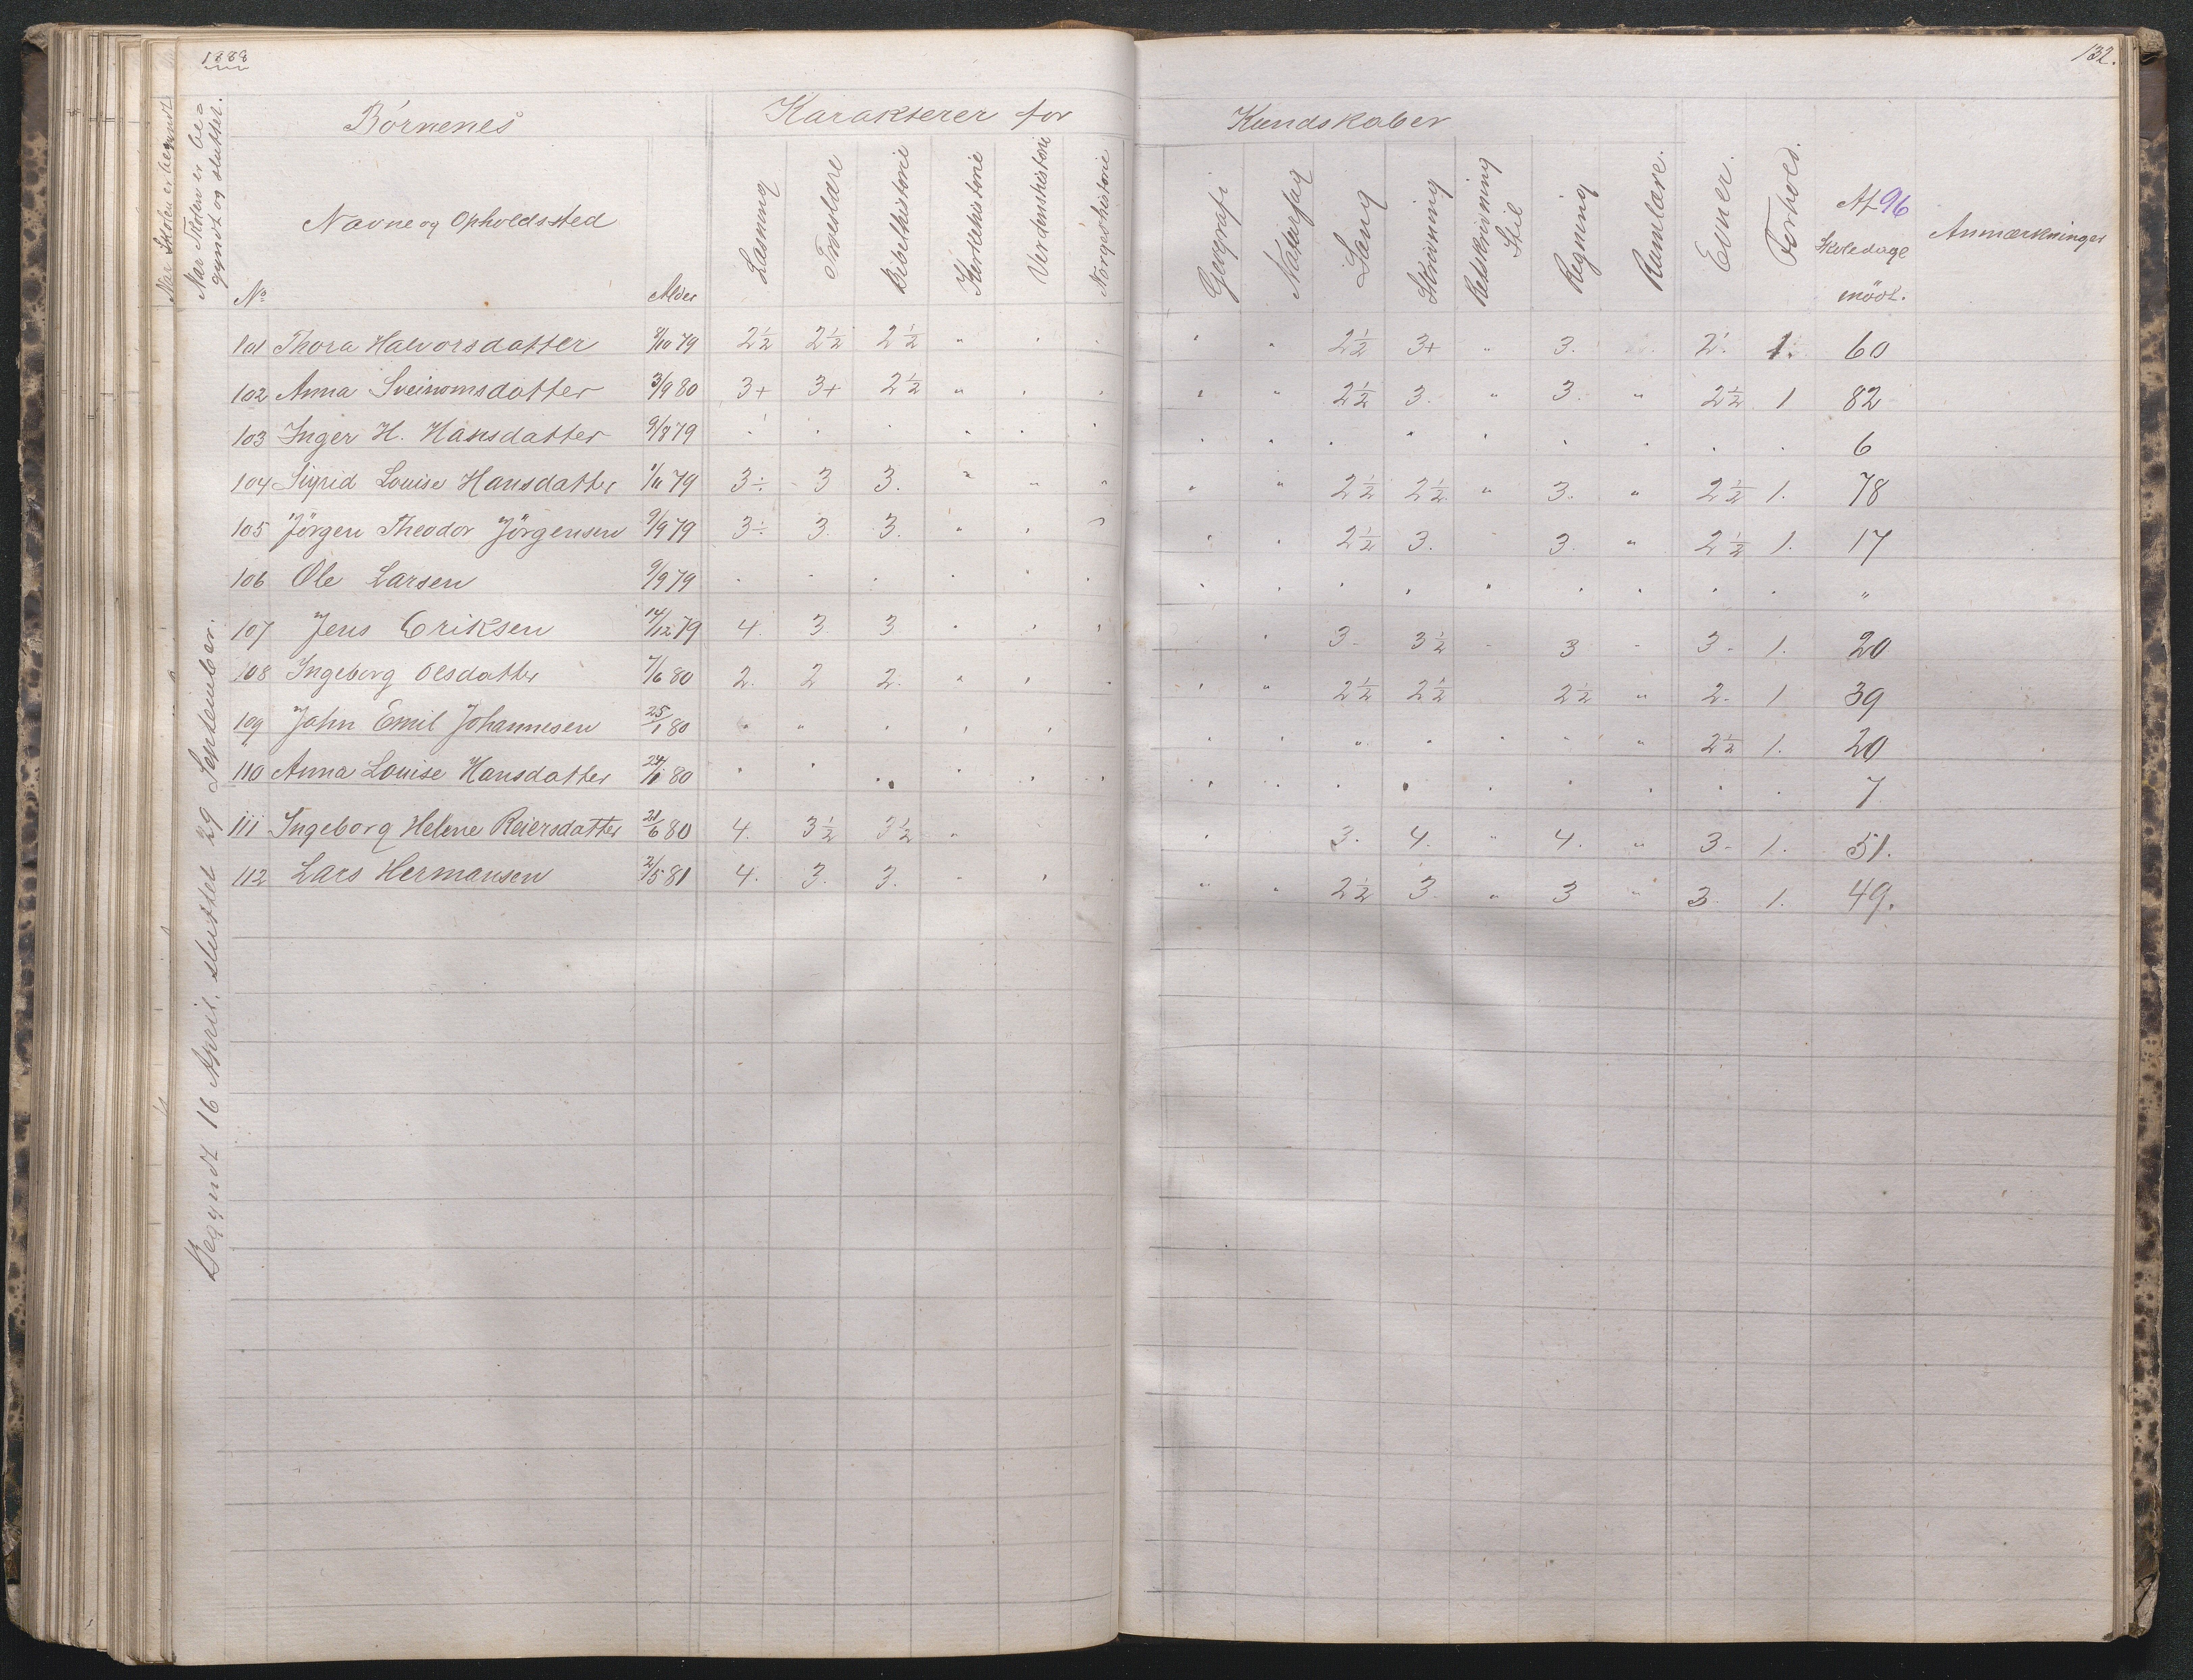 1888
132.
Når Skolen er begyndt
Når Skolen er be=
gyndt og sluttet.
Börnenes
Karakterer for
Kundskaber
No
Navne og Opholdssted
Alder
Læsning
Troeslære
Bibelhistorie
Kirkehistorie
Verdenshistorie
Norgeshistorie
Geografi
Naturfag
Sang
Skrivning
Retskrivning
Stil
Regning
Rumlære.
Evner.
Forhold.
Af 96
Skoledage
mödt.
Anmærkninger
Begyndt 16 April, sluttet 29 September.
101 Thora Halvorsdatter 8/10 79 2½ 2½ 2½ " " " " " 2½ 3+ " 3. 2. 1. 60
102 Anna Sveinomsdatter 3/9 80 3+ 3+ 2½ " " " " " 2½ 3. " 3. " 2½ 1 82
103 Inger H. Hansdatter 9/8 79 " " " " " " " " " " " " " " " 6
104 Sigrid Louise Hansdatter 1/11 79 3÷ 3 3. " " " " " 2½ 2½ " 3. " 2½ 1. 78
105 Jörgen Theodor Jörgensen 9/9 79 3÷ 3. 3. " " " " " 2½ 3. " 3. " 2½ 1. 17
106 Ole Larsen 9/9 79 " " " " " " " " " " " " " " " "
107 Jens Eriksen 14/12 79 4. 3. 3 " " " " 3- 3½ - 3 - 3- 1. 20
108 Ingeborg Olsdatter 7/6 80 2. 2 2. " " " " " 2½ 2½ 2½ " 2- 1 39
109 John Emil Johannesen 25/1 80 " " " " " " " " " " " " 2½ 1. 20
110 Anna Louise Hansdatter 24/1 80 " " " " " " " " " " " " " " " 7
111 Ingeborg Helene Reiersdatter 21/6 80 4. 3½ 3½ " " 3. 4. " 4. " 3- 1. 51.
112 Lars Hermansen 2/5 81 4. 3. 3. " " " " 2½ 3. " 3 " 3. 1. 49.